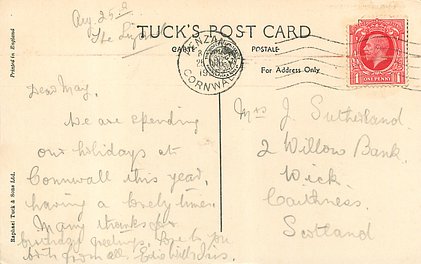 Aug. 25th
TUCK'S POST CARD
CARTE POSTALE
For Address Only
PENZANCE
CORNWALL
ONE PENNY
Printed in England
Raphael Tuck & Sons Ltd.
Dear May,
We are spending
our holidays at
Cornwall this year,
having a lovely time.
Many thanks for
birthday greetings. Love to you
both from all
Mrs J. Sutherland.
2 Willow Bank.
Wick.
Caithness.
Scotland